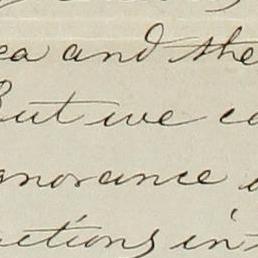 ea and the
But we co
gnorance
actions in